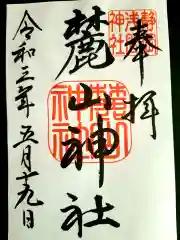 奉拝
静岡浅間神社
麓山神社
麓山神社
令和三年五月十九日